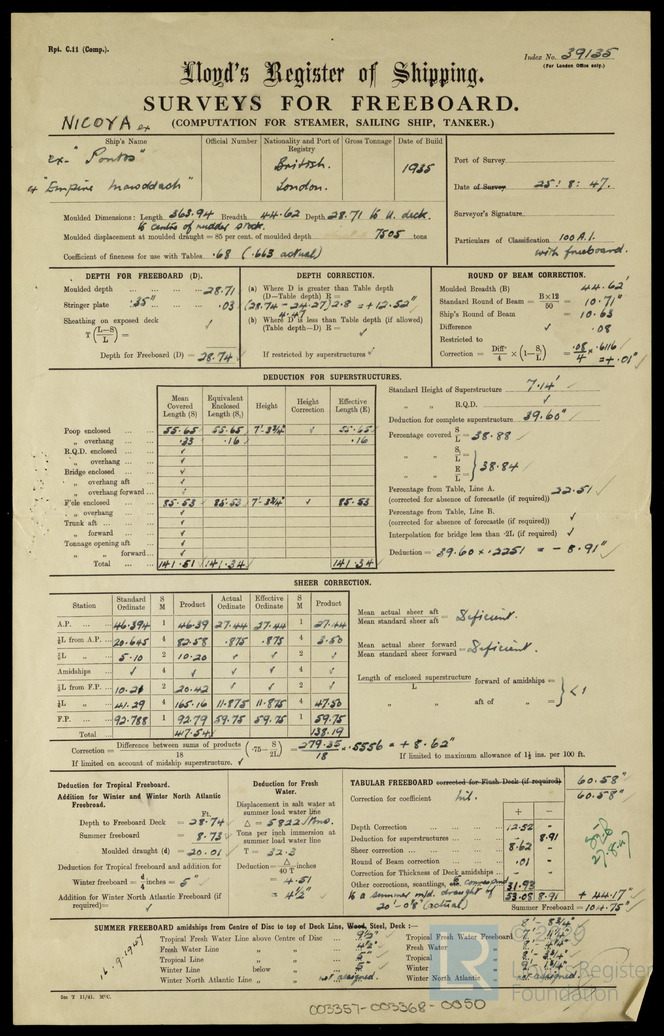 Rpt. C.11 (Comp.).
Index No. 39135
(For London Office only.)
Lloyd's Register of Shipping.
SURVEYS FOR FREEBOARD.
(COMPUTATION FOR STEAMER, SAILING SHIP, TANKER.)
NICOYA ex
Ship's Name Official Number Nationality and Port of Registry Gross Tonnage Date of Build
ex- "Pontos" British. 1935
ex "Empire Mawddach" London.
Port of Survey
Date of Survey 25:8:47.
Surveyor's Signature
Particulars of Classification 100 A.1. with freeboard.
Moulded Dimensions: Length 363.94 Breadth 44.62 Depth 28.71 to U. deck.
to centre of rudder stock.
Moulded displacement at moulded draught = 85 per cent. of moulded depth 7505 tons
Coefficient of fineness for use with Tables .68 (.663 actual)
DEPTH FOR FREEBOARD (D).
Moulded depth 28.71
Stringer plate .35" .03
Sheathing on exposed deck ✓
T (L–S / L) =
Depth for Freeboard (D) = 28.74
DEPTH CORRECTION.
(a) Where D is greater than Table depth
(D—Table depth) R =
(28.74 - 24.27) 2.8 = + 12.52"
4.47
(b) Where D is less than Table depth (if allowed)
(Table depth—D) R = ✓
If restricted by superstructures ✓
ROUND OF BEAM CORRECTION.
Moulded Breadth (B) 44.62'
Standard Round of Beam = B×12 / 50 = 10.71"
Ship's Round of Beam = 10.63
Difference ✓ .08
Restricted to
Correction = Diff. / 4 × (1 – S₁ / L) = .08 / 4 × .6116 = +.01"
DEDUCTION FOR SUPERSTRUCTURES.
Mean Covered Length (S) Equivalent Enclosed Length (S₁) Height Height Correction Effective Length (E)
Poop enclosed 55.65 55.65 7'-3¾" ✓ 55.65
„ overhang .33 .16 .16
R.Q.D. enclosed ✓
„ overhang ✓
Bridge enclosed ✓
„ overhang aft ✓
„ overhang forward ✓
F'cle enclosed 85.53 85.53 7'-3¾" ✓ 85.53
„ overhang ✓
Trunk aft ✓
„ forward ✓
Tonnage opening aft ✓
„ „ forward ✓
Total 141.51 141.34 141.34
Standard Height of Superstructure 7.14'
„ „ R.Q.D. ✓
Deduction for complete superstructure 39.60"
Percentage covered S / L = 38.88
„ „ S₁ / L
„ „ E / L } = 38.84
Percentage from Table, Line A.
(corrected for absence of forecastle (if required)) 22.51
Percentage from Table, Line B.
(corrected for absence of forecastle (if required)) ✓
Interpolation for bridge less than ·2L (if required) ✓
Deduction = 39.60 × .2251 = - 8.91"
SHEER CORRECTION.
Station Standard Ordinate S M Product Actual Ordinate Effective Ordinate S M Product
A.P. 46.394 1 46.39 27.44 27.44 1 27.44
⅙L from A.P. 20.645 4 82.58 .875 .875 4 3.50
⅓L „ 5.10 2 10.20 ✓ ✓ 2 ✓
Amidships ✓ 4 ✓ ✓ ✓ 4 ✓
⅓L from F.P. 10.21 2 20.42 ✓ ✓ 2 ✓
⅙L „ 41.29 4 165.16 11.875 11.875 4 47.50
F.P. 92.788 1 92.79 59.75 59.75 1 59.75
Total 417.54 138.19
Mean actual sheer aft / Mean standard sheer aft = Deficient.
Mean actual sheer forward / Mean standard sheer forward = Deficient.
Length of enclosed superstructure / L forward of amidships =
„ „ aft of „ = } <1
Correction = Difference between sums of products / 18 (·75 – S / 2L) = 279.35 / 18 × .5556 = + 8.62"
If limited on account of midship superstructure. ✓
If limited to maximum allowance of 1½ ins. per 100 ft.
Deduction for Tropical Freeboard.
Addition for Winter and Winter North Atlantic Freeboard.
Ft.
Depth to Freeboard Deck = 28.74
Summer freeboard = 8.73
Moulded draught (d) = 20.01
Deduction for Tropical freeboard and addition for
Winter freeboard = d / 4 inches = 5"
Addition for Winter North Atlantic Freeboard (if required) = ✓
Deduction for Fresh Water.
Displacement in salt water at summer load water line
Δ = 5822 tons.
Tons per inch immersion at summer load water line
T = 32.3
Deduction = Δ / 40 T inches
= 4.51
= 4½"
TABULAR FREEBOARD corrected for Flush Deck (if required) 60.58"
Correction for coefficient nil. 60.58"
+ -
Depth Correction 12.52 -
Deduction for superstructures - 8.91
Sheer correction 8.62 -
Round of Beam correction .01 -
Correction for Thickness of Deck amidships - -
Other corrections, scantlings, to correspond 31.93
to a summer mld. draught of 53.08 8.91 + 44.17"
20'-0⅛" (actual)
Summer Freeboard = 104.75"
SUMMER FREEBOARD amidships from Centre of Disc to top of Deck Line, Wood, Steel, Deck :— 8'-8¾"
Tropical Fresh Water Line above Centre of Disc 9½" Tropical Fresh Water Freeboard 7'-11¼"
Fresh Water Line „ „ 4½" Fresh Water „ 8'-4¼"
Tropical Line „ „ 5" Tropical „ 8'-3¾"
Winter Line below „ 5" Winter „ 9'-1¾"
Winter North Atlantic Line „ „ not assigned. Winter North Atlantic „ not assigned.
16.9.1947
5m T 11/41. MᶜC.
003357-003368-0050
© 2020
LR
Lloyd's Register
Foundation